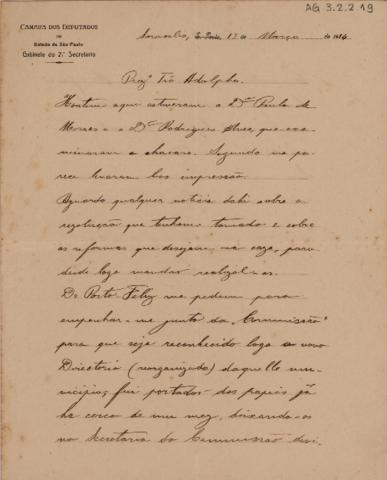 AG 3.2.2.19
CAMARA DOS DEPUTADOS
DO
Estado de São Paulo
Gabinete do 2.º Secretario
Sorocaba, S. Paulo, 13 de Março de 1914
Prezº Tio Adolpho.
Hontem aqui estiveram o Dr. Paula de
Moraes e o Dr. Rodrigues Alves, que exa-
minaram a chacara. Segundo me pa-
rece levaram boa impressão.
Aguardo qualquer noticia dahi sobre a
resolução que tenham tomado e sobre
as reformas que desejam na caza, para
desde logo mandar realizal-as.
De Porto Feliz me pedem para
empenhar-me junto da "Commissão"
para que seja reconhecido logo o novo
Directorio (reorganizado) daquelle mu-
nicipio; fui portador dos papeis já
ha cerca de um mez, deixando-os
na Secretaria da Commissão